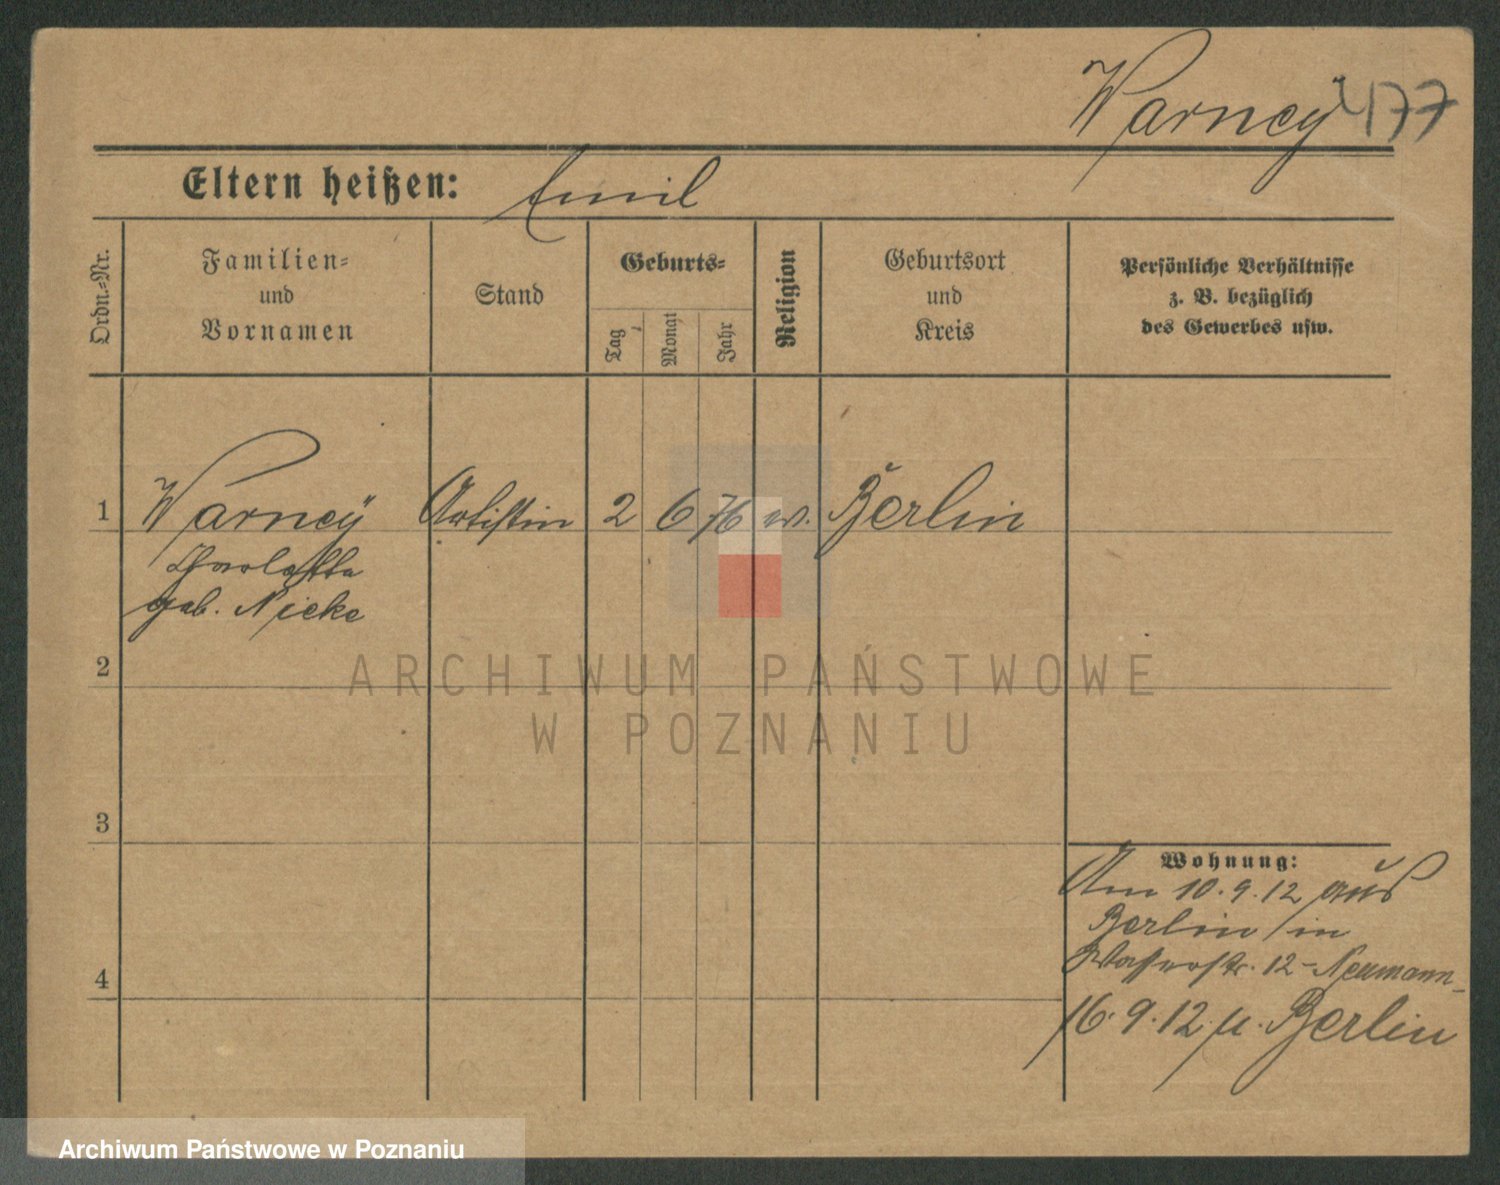 Warneÿ 477
Eltern heißen: Emil
Ordn.-Nr.
Familien-
und
Vornamen
Stand
Geburts-
Tag
Monat
Jahr
Religion
Geburtsort
und
Kreis
Persönliche Verhältnisse
z. B. bezüglich
des Gewerbes usw.
1 Warneÿ Artistin 2 6 76 ev. Berlin
Charlotte
geb. Nicke
2
ARCHIWUM PAŃSTWOWE
W POZNANIU
3
Wohnung:
Am 10.9.12 aus
Berlin in
Wasserstr. 12 - Neumann -
4
16.9.12 n. Berlin
Archiwum Państwowe w Poznaniu